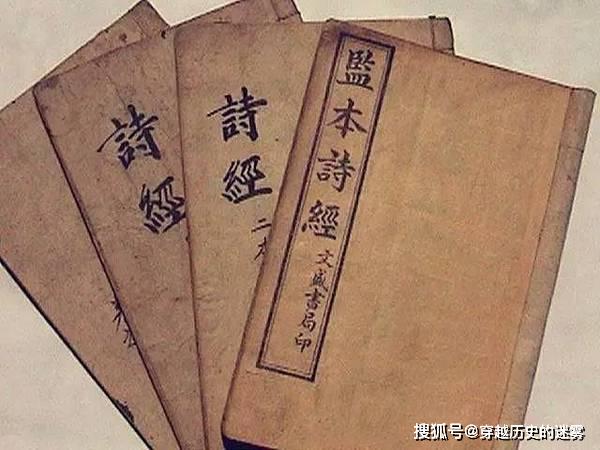 監本詩經
文盛書局印
詩經
二本
詩經
搜狐号@穿越历史的迷雾